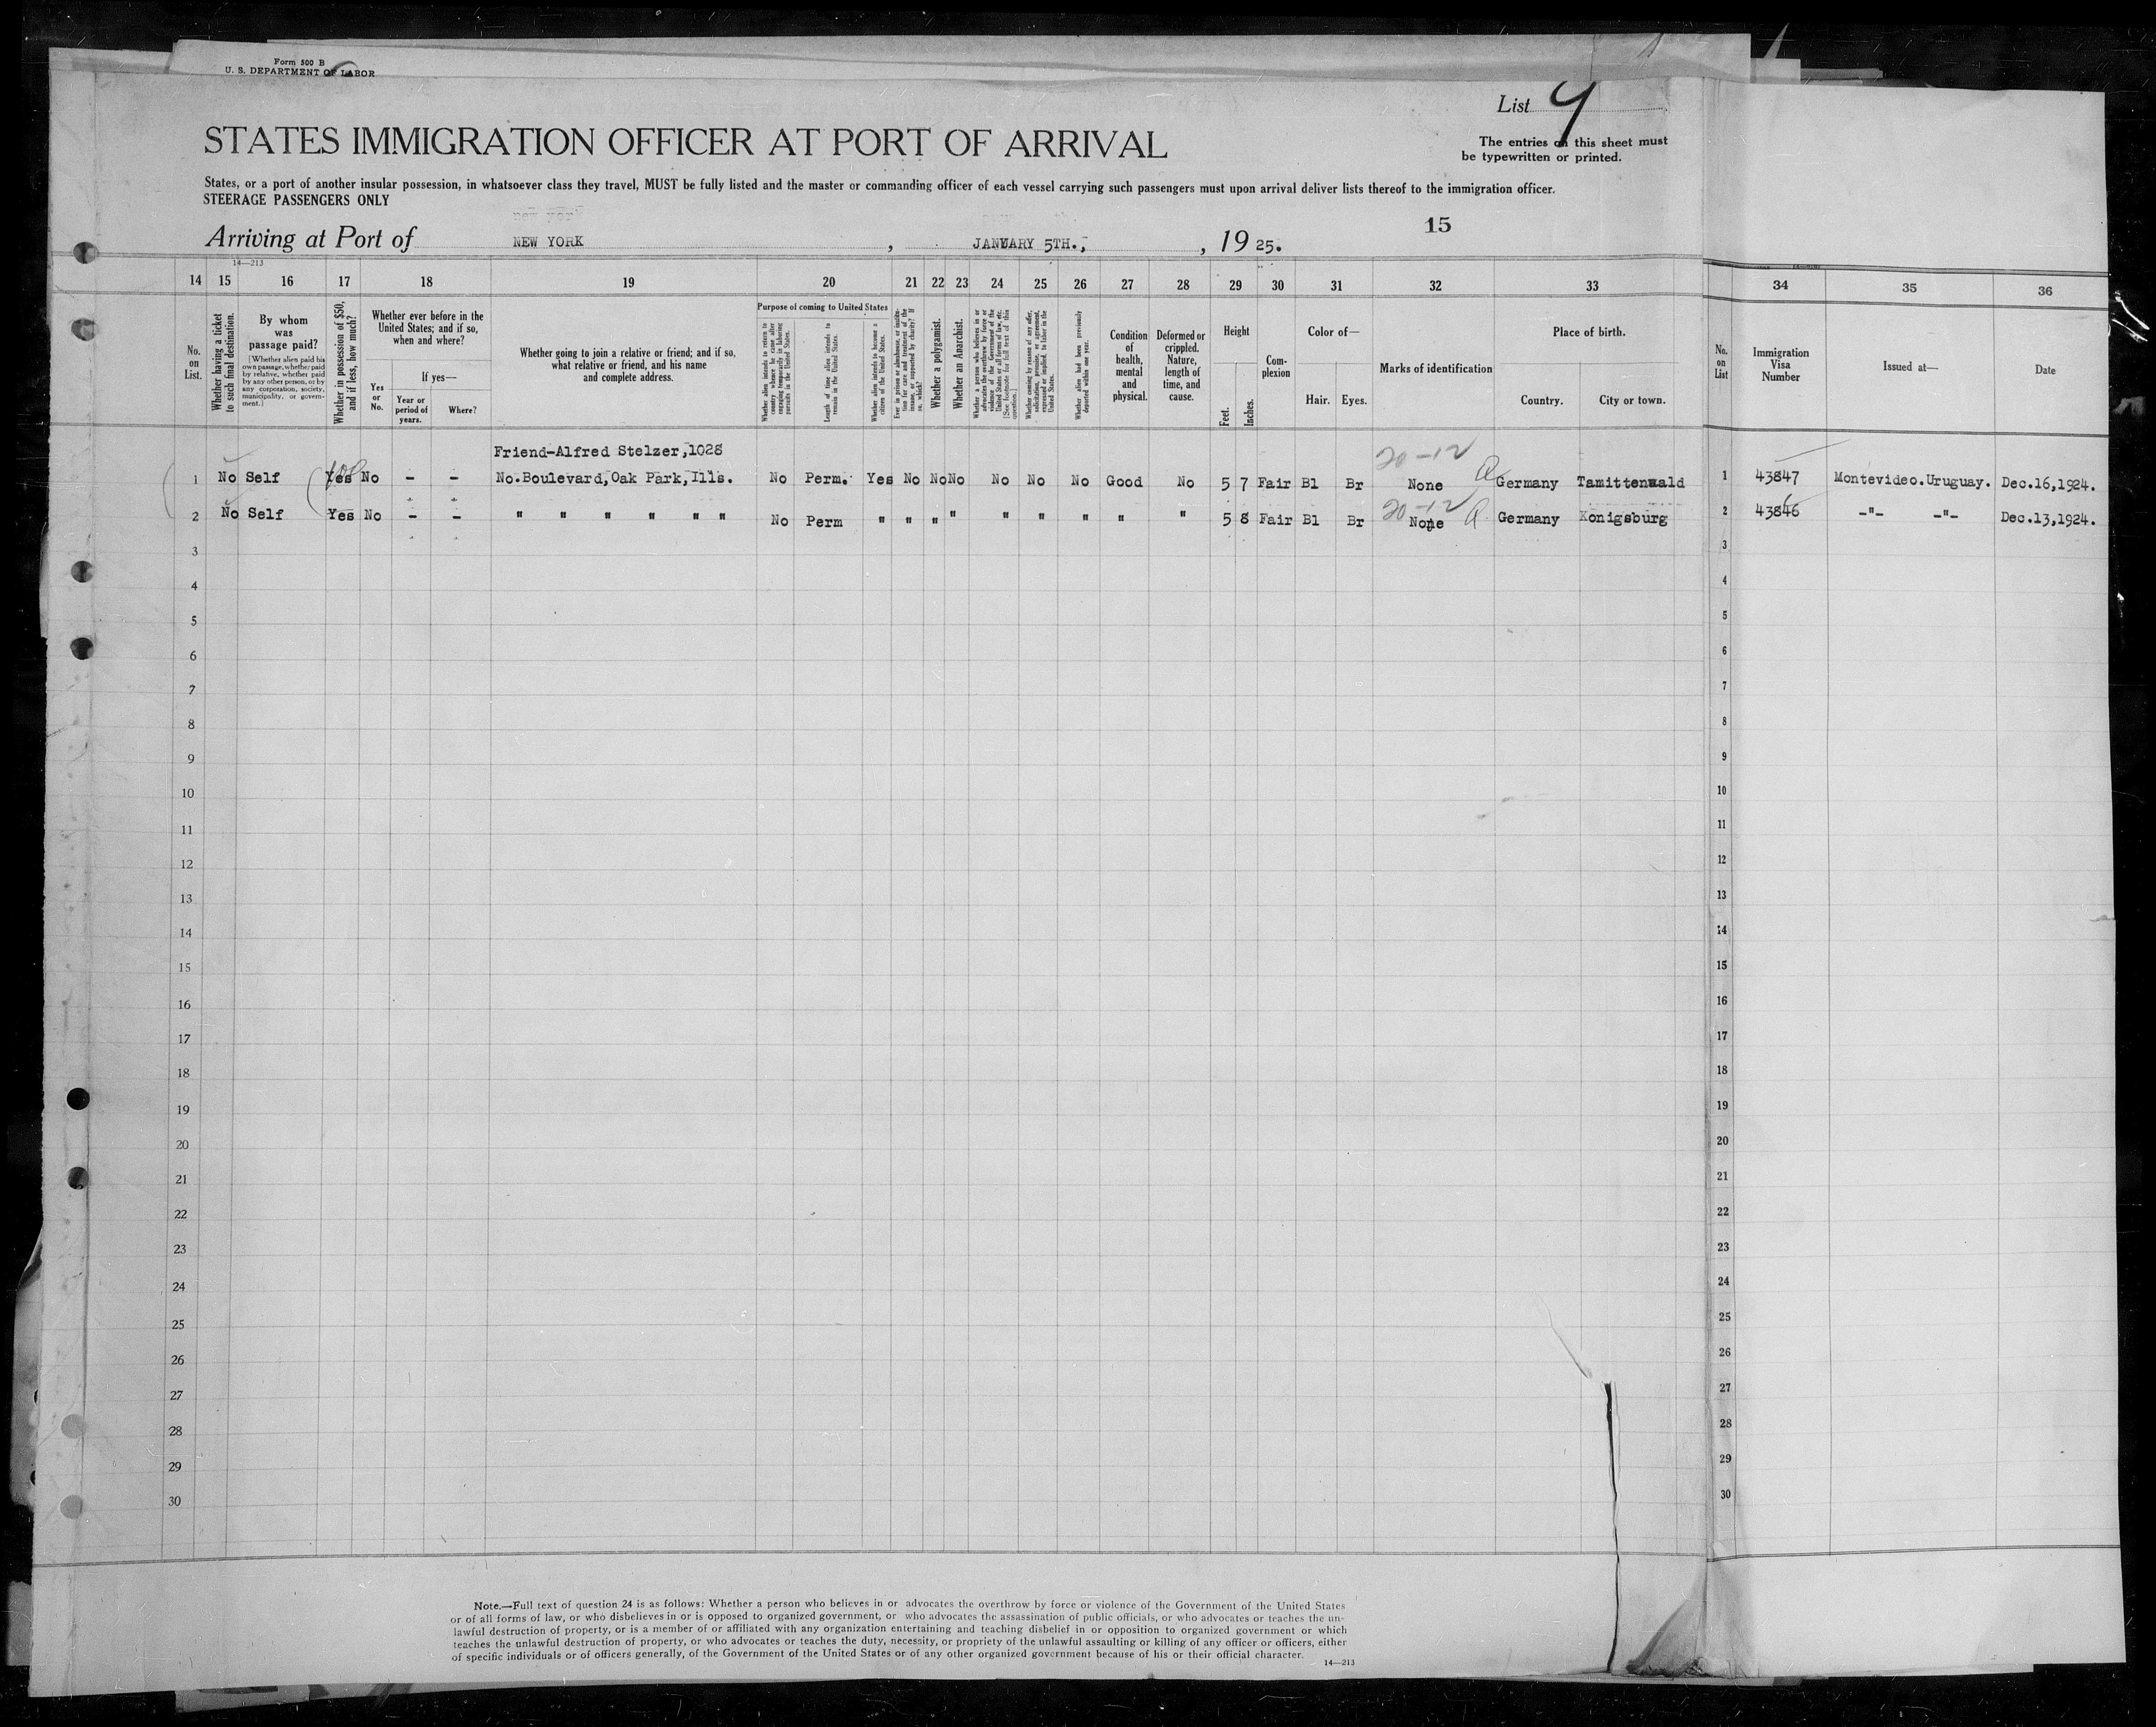 Form 500 B
U. S. DEPARTMENT OF LABOR
List 4
STATES IMMIGRATION OFFICER AT PORT OF ARRIVAL
The entries on this sheet must
be typewritten or printed.
States, or a port of another insular possession, in whatsoever class they travel, MUST be fully listed and the master or commanding officer of each vessel carrying such passengers must upon arrival deliver lists thereof to the immigration officer.
STEERAGE PASSENGERS ONLY
15
Arriving at Port of NEW YORK , JANUARY 5TH., , 19 25.
14—213
14 15 16 17 18 19 20 21 22 23 24 25 26 27 28 29 30 31 32 33 34 35 36
No. on List.
Whether having a ticket to such final destination.
By whom was passage paid?
[Whether alien paid his own passage, whether paid by relative, whether paid by any other person, or by any corporation, society, municipality, or government.]
Whether in possession of $50, and if less, how much?
Whether ever before in the United States; and if so, when and where?
Yes or No.
If yes—
Year or period of years.
Where?
Whether going to join a relative or friend; and if so, what relative or friend, and his name and complete address.
Purpose of coming to United States
Whether alien intends to return to country whence he came after engaging temporarily in laboring pursuits in the United States.
Length of time alien intends to remain in the United States.
Whether alien intends to become a citizen of the United States.
Ever in prison or almshouse, or institution for care and treatment of the insane, or supported by charity? If so, which?
Whether a polygamist.
Whether an Anarchist.
Whether a person who believes in or advocates the overthrow by force or violence of the Government of the United States or all forms of law, etc. [See footnote for full text of this question.]
Whether coming by reason of any offer, solicitation, promise, or agreement, expressed or implied, to labor in the United States.
Whether alien had been previously deported within one year.
Condition of health, mental and physical.
Deformed or crippled. Nature, length of time, and cause.
Height
Feet.
Inches.
Complexion
Color of—
Hair.
Eyes.
Marks of identification
Place of birth.
Country.
City or town.
No. on List
Immigration Visa Number
Issued at—
Date
Friend-Alfred Stelzer,1028
20-12
1 No Self Yes 100 No - - No.Boulevard,Oak Park,Ills. No Perm. Yes No No No No No No Good No 5 7 Fair Bl Br None Germany Tamittenwald 1 43847 Montevideo.Uruguay. Dec.16,1924.
20-12
2 No Self Yes No - - " " " " " " No Perm " " " " " " " " " 5 8 Fair Bl Br None Germany Konigsburg 2 43846 -"- -"- Dec.13,1924.
3 3
4 4
5 5
6 6
7 7
8 8
9 9
10 10
11 11
12 12
13 13
14 14
15 15
16 16
17 17
18 18
19 19
20 20
21 21
22 22
23 23
24 24
25 25
26 26
27 27
28 28
29 29
30 30
Note.—Full text of question 24 is as follows: Whether a person who believes in or advocates the overthrow by force or violence of the Government of the United States
or of all forms of law, or who disbelieves in or is opposed to organized government, or who advocates the assassination of public officials, or who advocates or teaches the un-
lawful destruction of property, or is a member of or affiliated with any organization entertaining and teaching disbelief in or opposition to organized government or which
teaches the unlawful destruction of property, or who advocates or teaches the duty, necessity, or propriety of the unlawful assaulting or killing of any officer or officers, either
of specific individuals or of officers generally, of the Government of the United States or of any other organized government because of his or their official character.
14—213